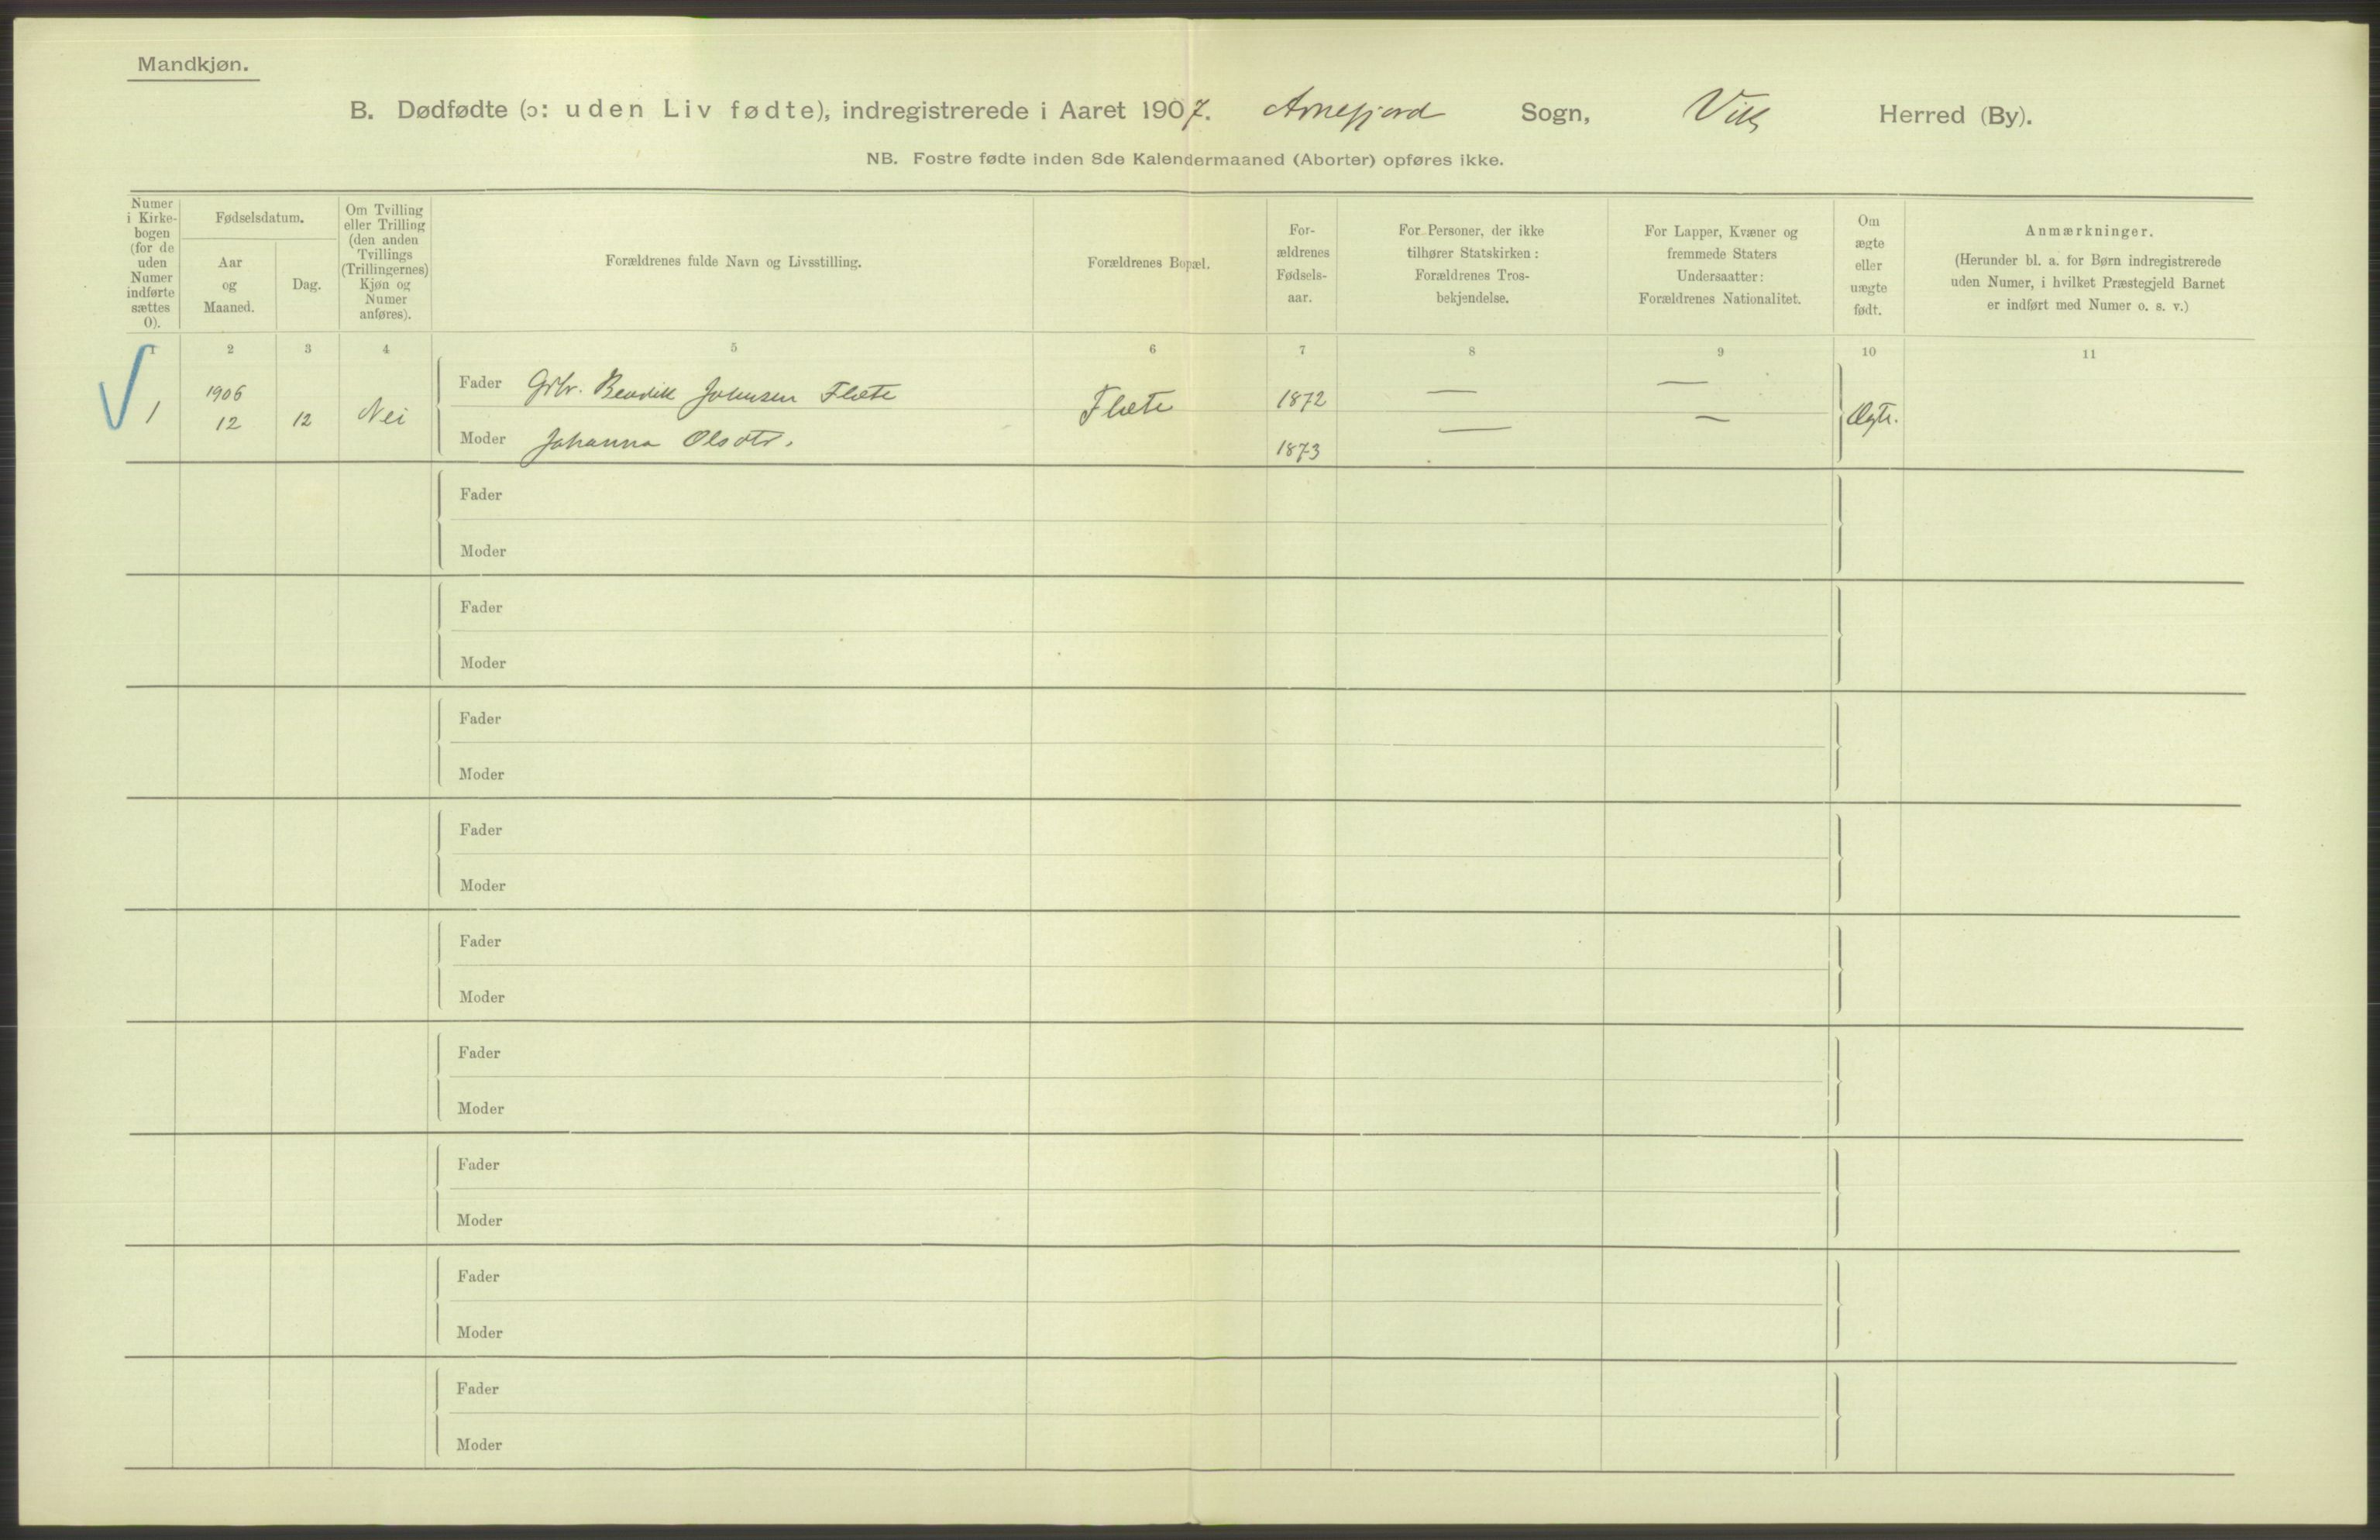 Mandkjøn.
B. Dødfødte (ɔ: uden Liv fødte), indregistrerede i Aaret 1907. Arnefjord Sogn, Vik Herred (By).
NB. Fostre fødte inden 8de Kalendermaaned (Aborter) opføres ikke.
Numer
i Kirke-
bogen
(for de
uden
Numer
indførte
sættes
0).
Fødselsdatum.
Aar
og
Maaned.
Dag.
Om Tvilling
eller Trilling
(den anden
Tvillings
(Trillingernes)
Kjøn og
Numer
anføres).
Forældrenes fulde Navn og Livsstilling.
Forældrenes Bopæl.
For-
ældrenes
Fødsels-
aar.
For Personer, der ikke
tilhører Statskirken:
Forældrenes Tros-
bekjendelse.
For Lapper, Kvæner og
fremmede Staters
Undersaatter:
Forældrenes Nationalitet.
Om
ægte
eller
uægte
født.
Anmærkninger.
(Herunder bl. a. for Børn indregistrerede
uden Numer, i hvilket Præstegjeld Barnet
er indført med Numer o. s. v.)
1 2 3 4 5 6 7 8 9 10 11
1
1906
12
12
Nei
Fader Grbr. Bendik Johnsen Flete
Moder Johanna Olsdtr.
Flete
1872
1873
—
—
—
—
Ægte.
Fader
Moder
Fader
Moder
Fader
Moder
Fader
Moder
Fader
Moder
Fader
Moder
Fader
Moder
Fader
Moder
Fader
Moder